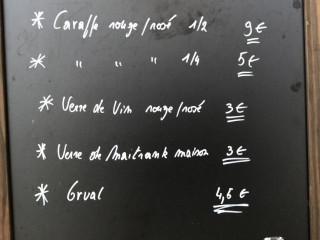 * Caraffe rouge/rosé 1/2 9€
* " " " 1/4 5€
* Verre de Vin rouge/rosé 3€
* Verre de Maitrank maison 3€
* Orval 4,5€